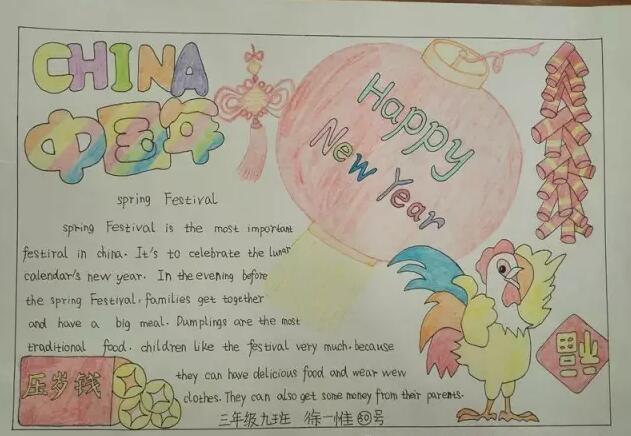 CHINA
中国年
Happy
New Year
spring Festival
spring Festival is the most important
festiral in china. It's to celebrate the lunar
calendar's new year. In the evening before
the spring Festival, families get together
and have a big meal. Dumplings are the most
traditional food. children like the festival very much, because
they can have delicious food and wear wew
clothes. They can also get some money from their parents.
压岁钱
福
三年级九班 徐一惟 50号